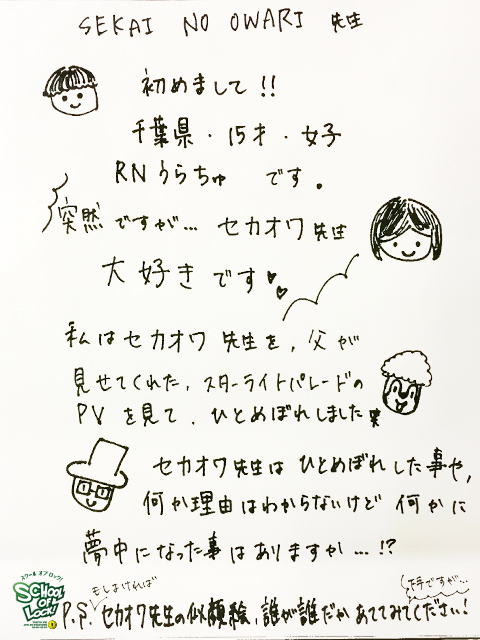 SEKAI NO OWARI 先生
初めまして!!
千葉県・15才・女子
RNうらちゅ です。
突然ですが… セカオワ先生
大好きです♥♥
私はセカオワ先生を、父が
見せてくれた、スターライトパレードの
PVを見て、ひとめぼれしました笑
セカオワ先生はひとめぼれした事や、
何か理由はわからないけど何かに
夢中になった事はありますか…!?
もしよければ
(下手ですが…)
P.S. セカオワ先生の似顔絵、誰が誰だかあててみてください!
スクール オブ ロック!
SCHOOL OF LOCK!